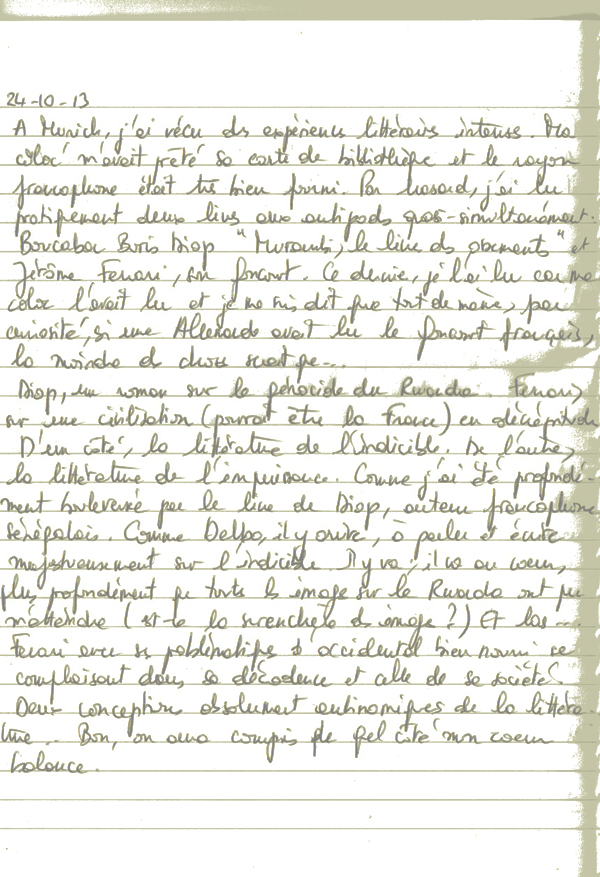 24-10-13
A Munich, j'ai vécu des expériences littéraires intenses. Ma
coloc' m'avait prêté sa carte de bibliothèque et le rayon
francophone était très bien fourni. Par hasard, j'ai lu
pratiquement deux livres aux antipodes quasi-simultanément.
Boubacar Boris Diop "Murambi, le livre des ossements" et
Jérôme Ferrari, son goncourt. Ce dernier, je l'ai lu car ma
coloc l'avait lu et je me suis dit que tout de même, par
curiosité, si une Allemande avait lu le goncourt français,
la moindre des choses serait que...
Diop, un roman sur le génocide du Rwanda. Ferrari,
sur une civilisation (pourrait être la France) en décrépitude.
D'un côté, la littérature de l'indicible. De l'autre,
la littérature de l'impuissance. Comme j'ai été profondé-
ment bouleversée par le livre de Diop, auteur francophone
sénégalais. Comme Delbo, il y arrive, à parler et écrire
majestueusement sur l'indicible. Il y va, il va au coeur,
plus profondément que toutes les images sur le Rwanda ont pu
m'atteindre (est-ce la surenchère des images ?) Et las...
Ferrari avec ses problématiques d'occidental bien nourri se
complaisant dans sa décadence et celle de sa société.
Deux conceptions absolument antinomiques de la littéra-
ture... Bon, on aura compris de quel côté mon coeur
balance.